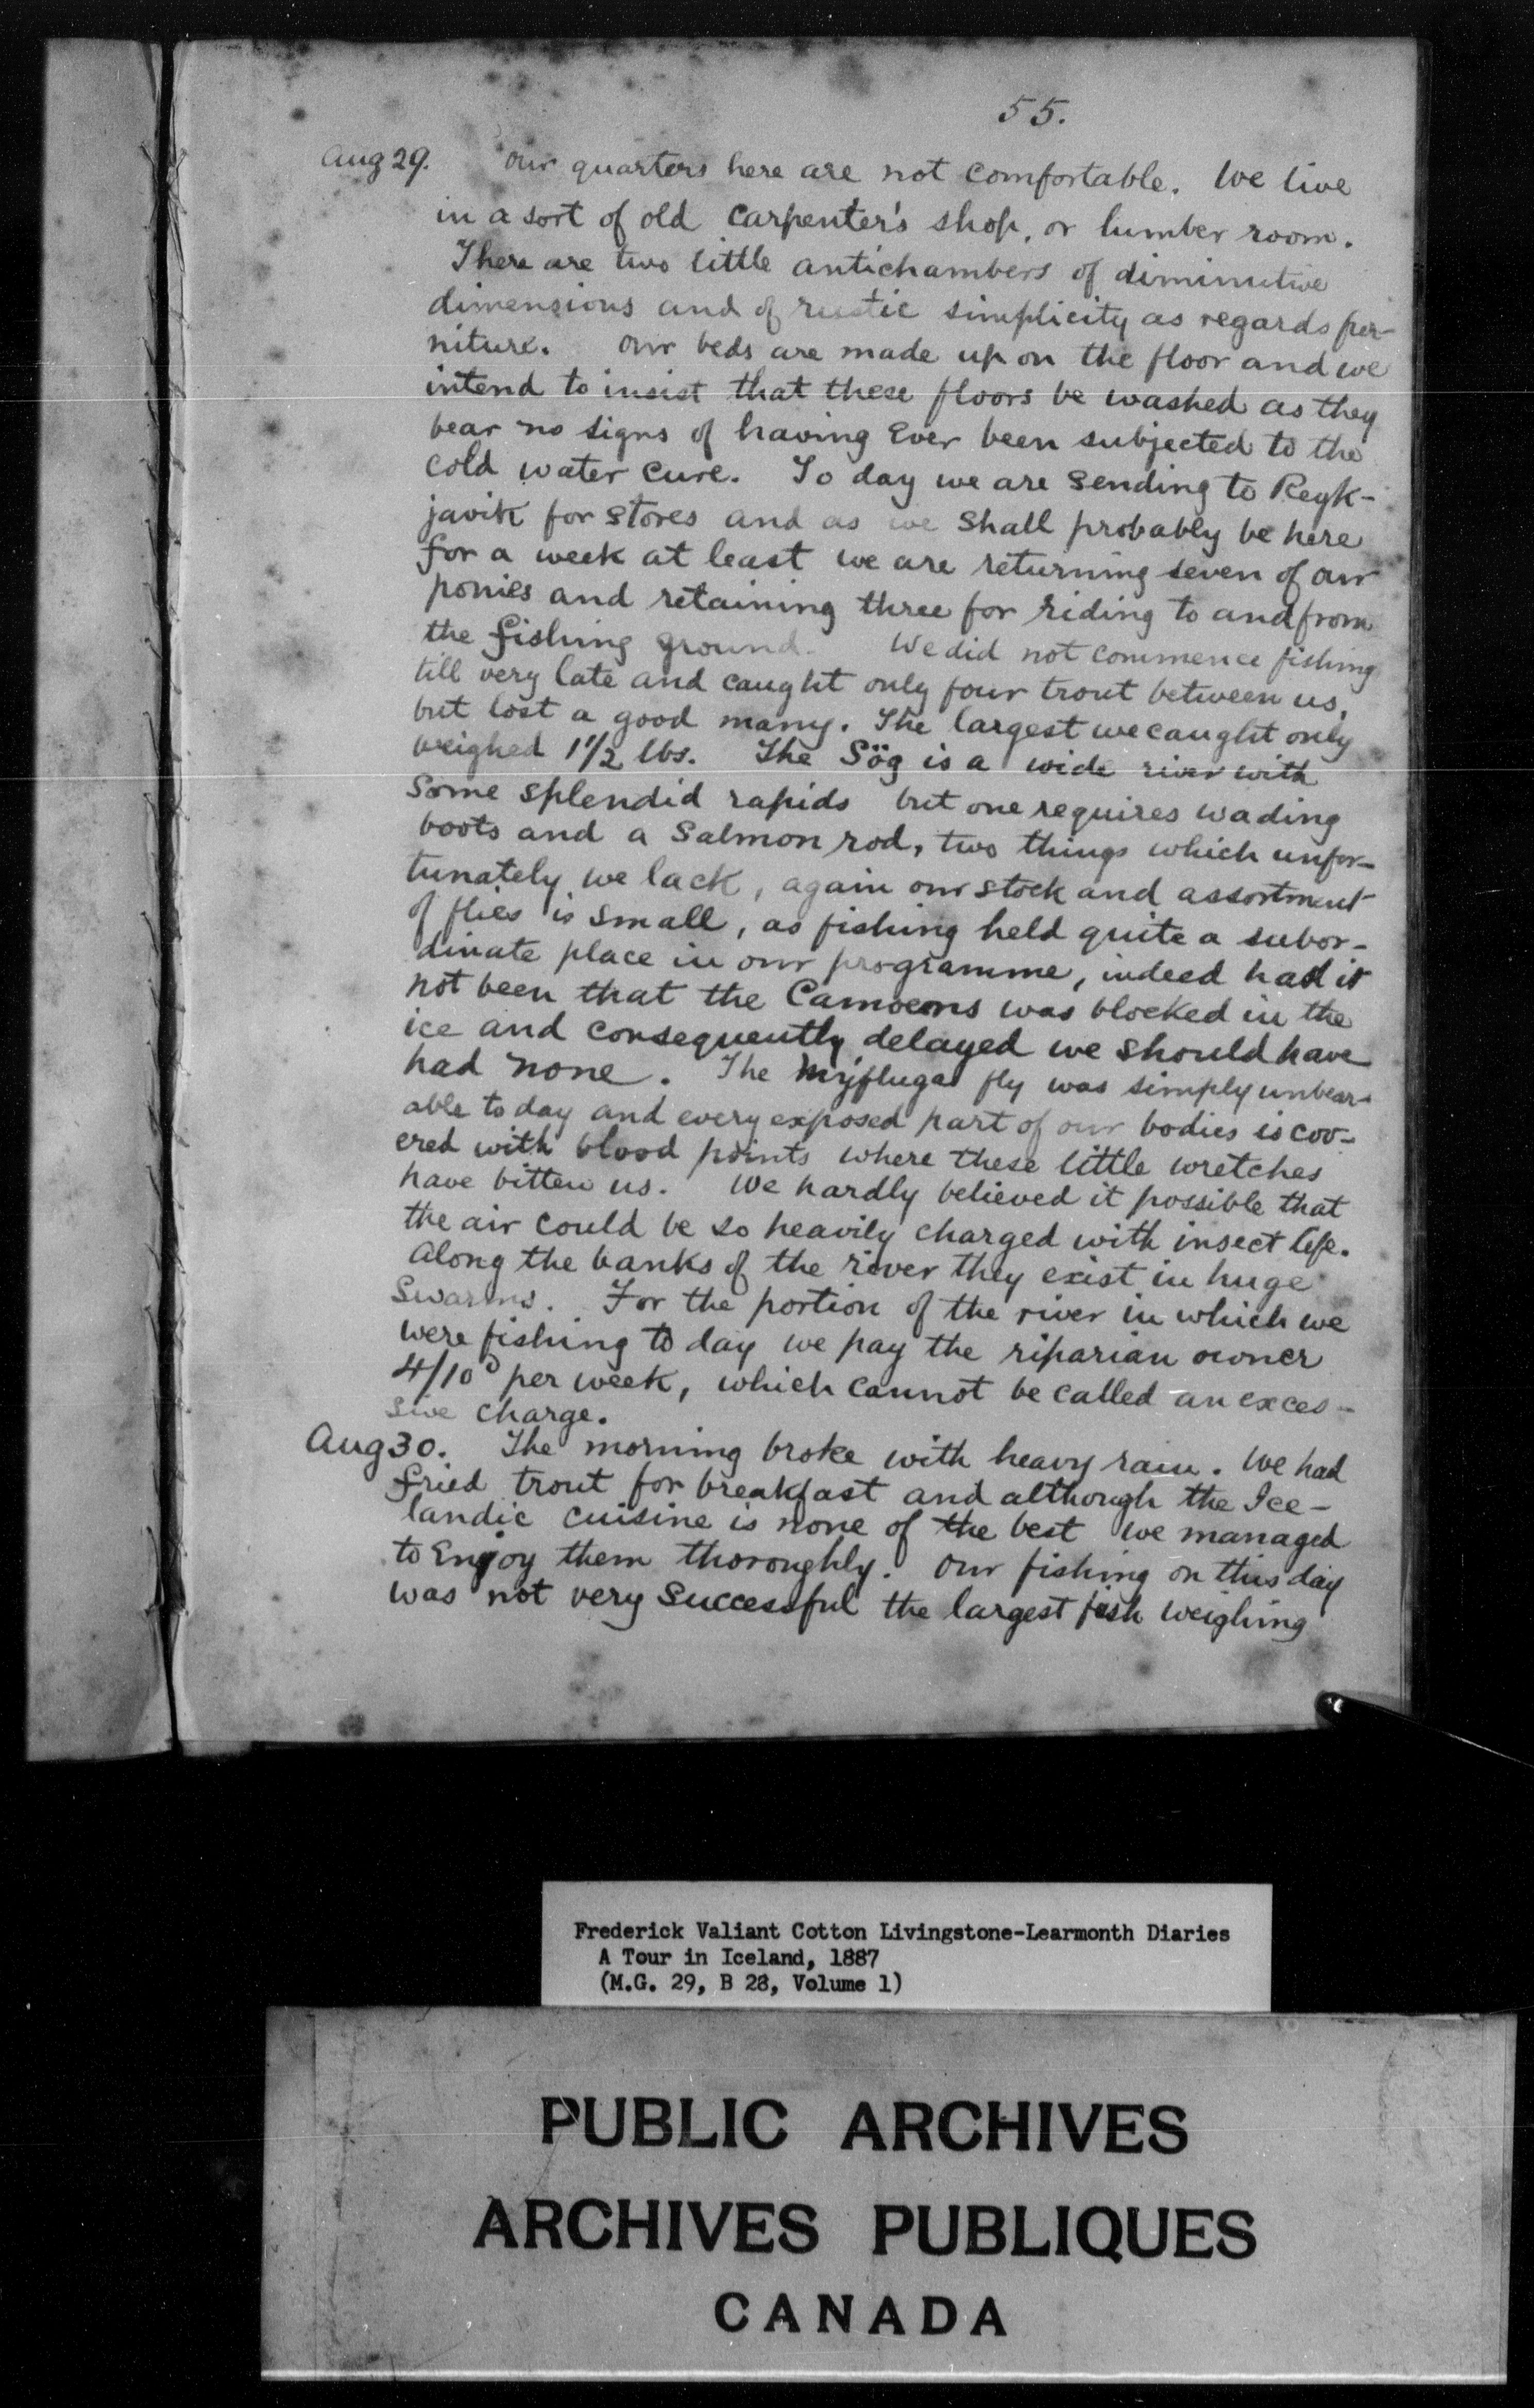 55.
Aug 29. Our quarters here are not comfortable. We live
in a sort of old carpenter's shop, or lumber room.
There are two little antichambers of diminutive
dimensions and of rustic simplicity as regards fur-
niture. Our beds are made up on the floor and we
intend to insist that these floors be washed as they
bear no signs of having ever been subjected to the
cold water cure. To day we are sending to Reyk-
javik for stores and as we shall probably be here
for a week at least we are returning seven of our
ponies and retaining three for riding to and from
the fishing ground. We did not commence fishing
till very late and caught only four trout between us,
but lost a good many. The largest we caught only
weighed 1 1/2 lbs. The Sög is a wide river with
some splendid rapids but one requires wading
boots and a salmon rod, two things which unfor-
tunately we lack, again our stock and assortment
of flies is small, as fishing held quite a subor-
dinate place in our programme, indeed had it
not been that the Camoens was blocked in the
ice and consequently delayed we should have
had none. The Mýfluga fly was simply unbear-
able to day and every exposed part of our bodies is cov-
ered with blood points where these little wretches
have bitten us. We hardly believed it possible that
the air could be so heavily charged with insect life.
Along the banks of the river they exist in huge
swarms. For the portion of the river in which we
were fishing to day we pay the riparian owner
4/10d per week, which cannot be called an exces-
sive charge.
Aug 30. The morning broke with heavy rain. We had
fried trout for breakfast and although the Ice-
landic cuisine is none of the best we managed
to enjoy them thoroughly. Our fishing on this day
was not very successful the largest fish weighing
Frederick Valiant Cotton Livingstone-Learmonth Diaries
A Tour in Iceland, 1887
(M.G. 29, B 28, Volume 1)
PUBLIC ARCHIVES
ARCHIVES PUBLIQUES
CANADA